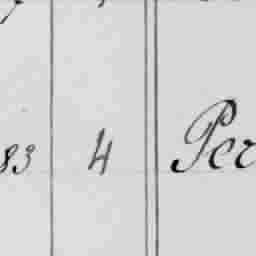 83 4 Per